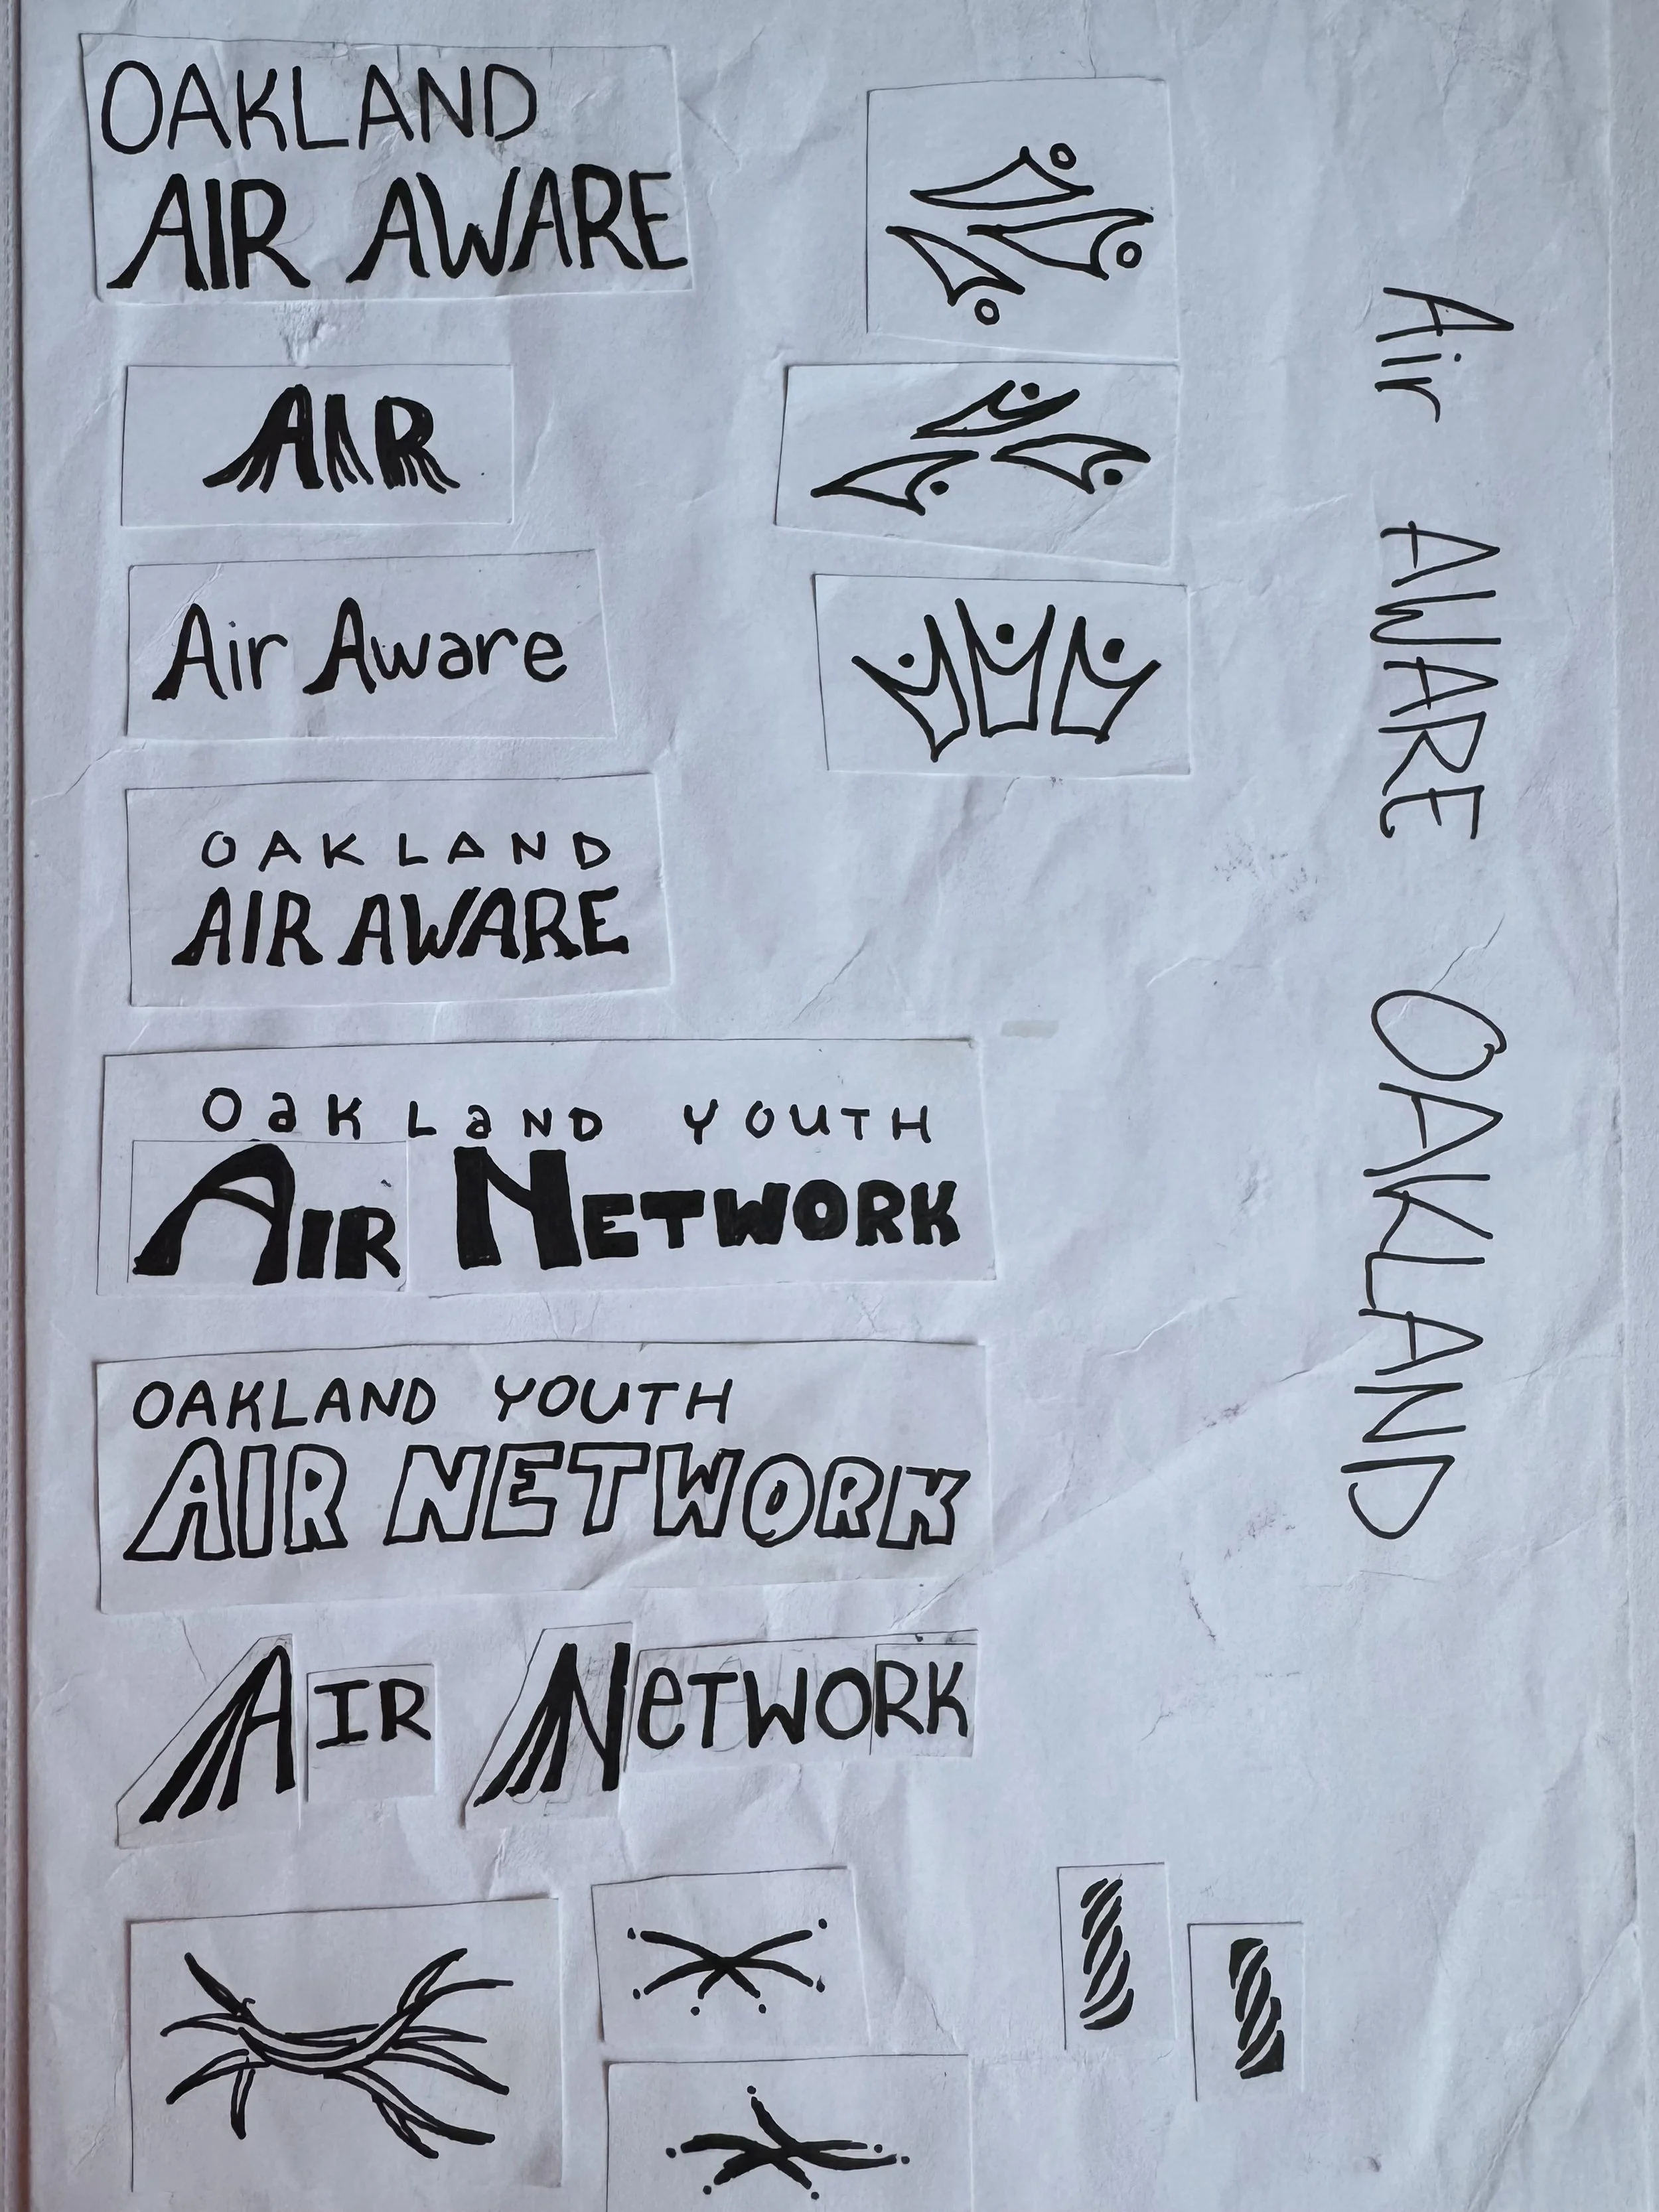 OAKLAND
AIR AWARE
AIR
Air Aware
OAKLAND
AIR AWARE
OaKLaND YOUTH
AIR NETWORK
OAKLAND YOUTH
AIR NETWORK
AIR NeTWORK
Air AWARE OAKLAND